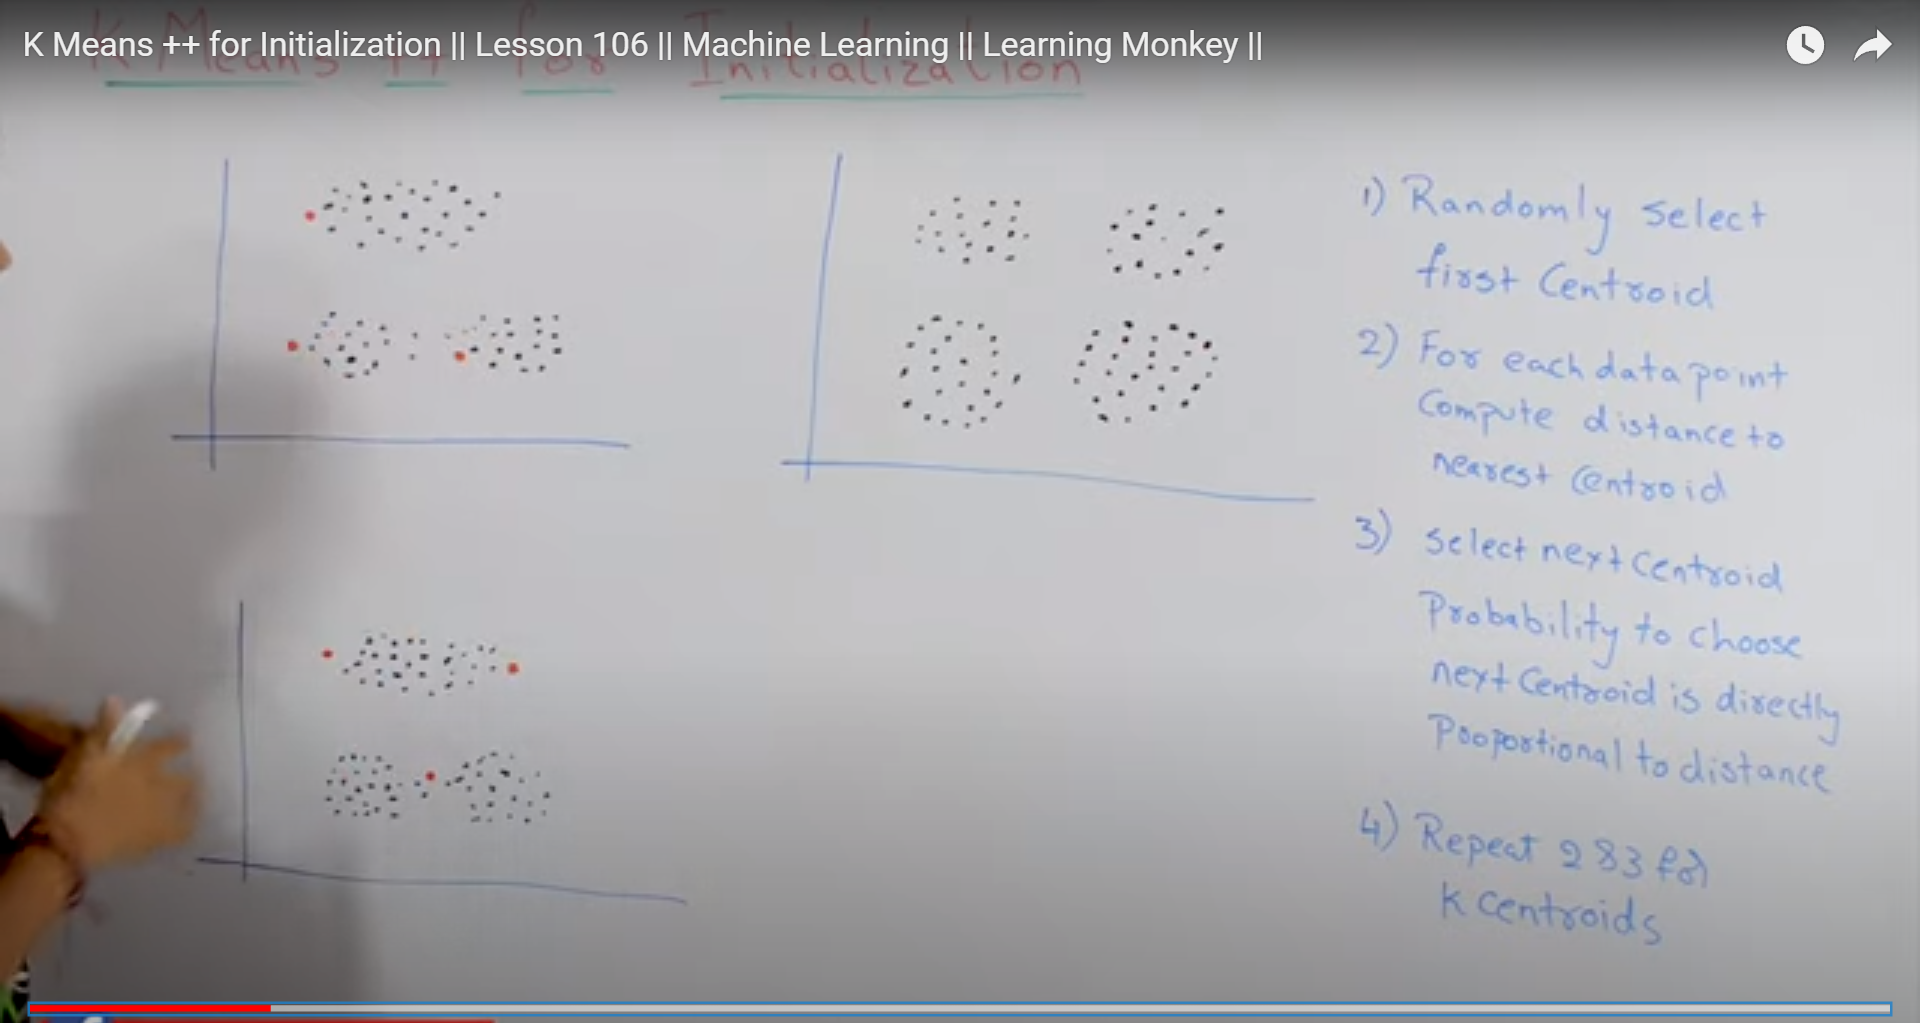 K Means ++ for Initialization || Lesson 106 || Machine Learning || Learning Monkey ||
K Means ++ for Initialization
1) Randomly select
first Centroid
2) For each data point
Compute distance to
nearest Centroid
3) Select next Centroid
Probability to choose
next Centroid is directly
Proportional to distance
4) Repeat 2 & 3 for
K Centroids